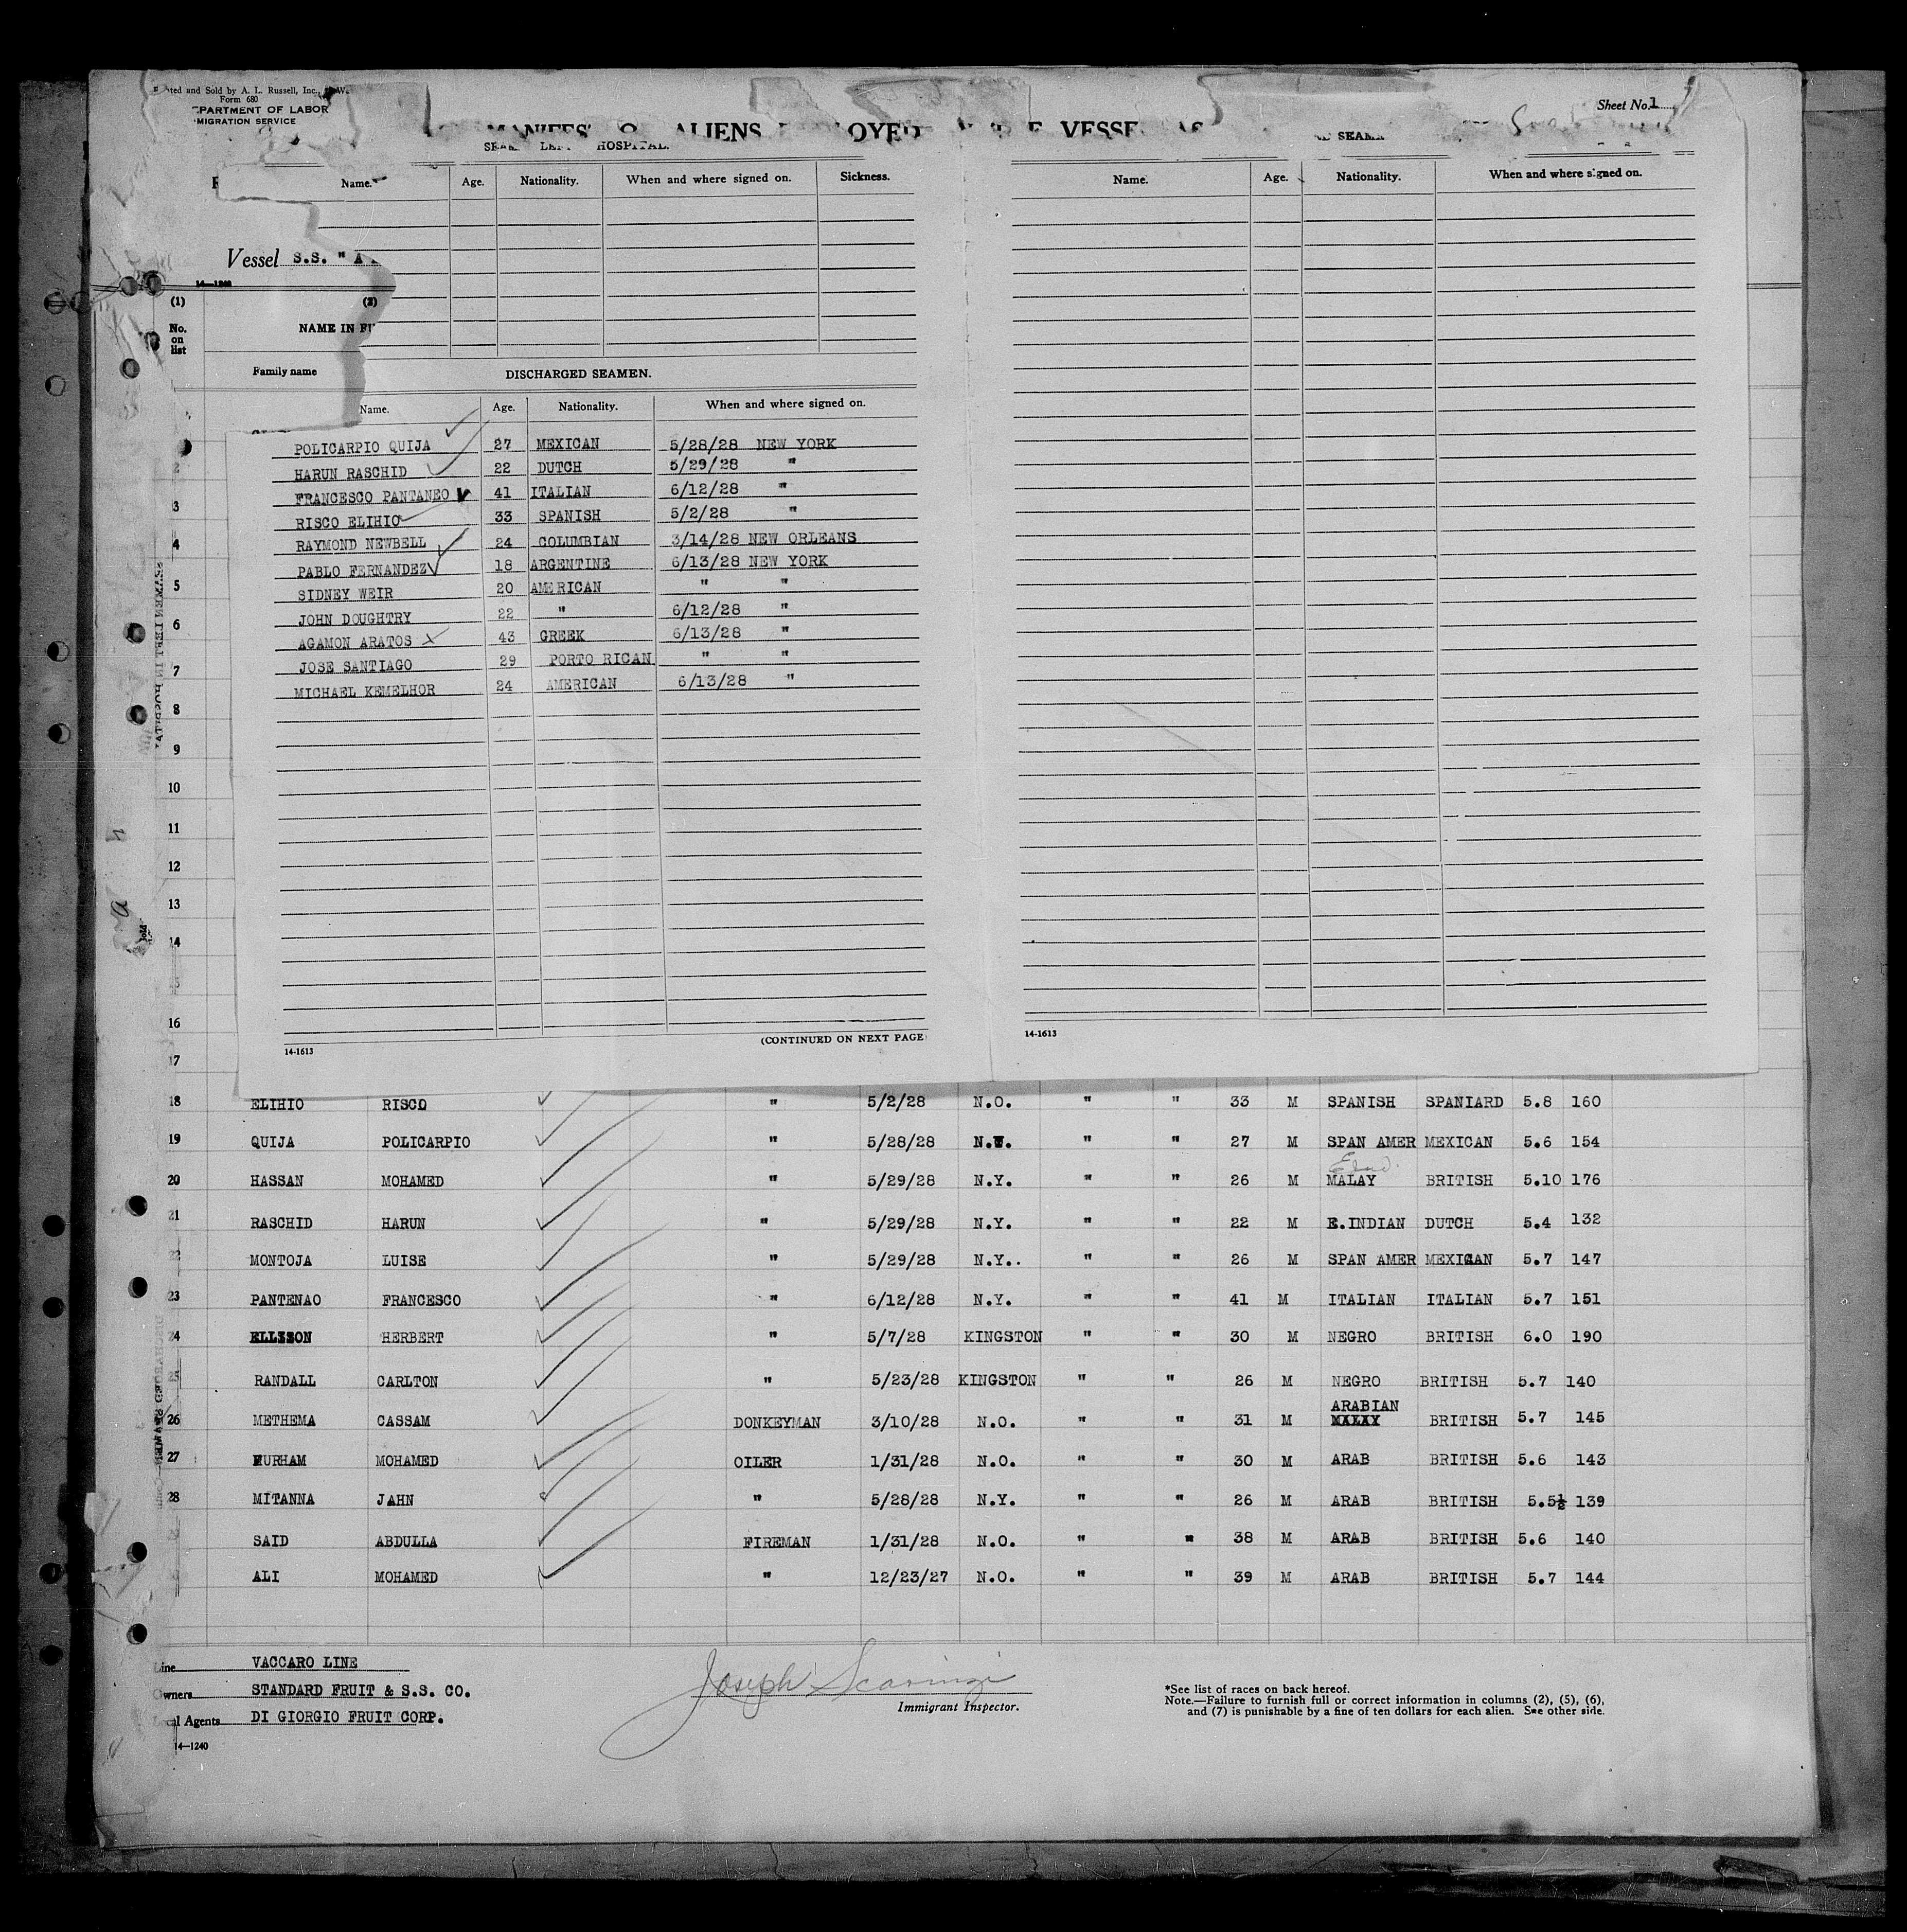 Sold by A. L. Russell, Inc.,
Form 680
DEPARTMENT OF LABOR
IMMIGRATION SERVICE
Sheet No. 1
ALIENS
HOSPITAL.
Name. Age. Nationality. When and where signed on. Sickness.
Name. Age. Nationality. When and where signed on.
Vessel S.S. "
(1) (2)
No. on list
NAME IN
Family name
DISCHARGED SEAMEN.
Name. Age. Nationality. When and where signed on.
POLICARPIO QUIJA 27 MEXICAN 5/28/28 NEW YORK
HARUN RASCHID 22 DUTCH 5/29/28 "
FRANCESCO PANTANEO 41 ITALIAN 6/12/28 "
RISCO ELIHIO 33 SPANISH 5/2/28 "
RAYMOND NEWBELL 24 COLUMBIAN 3/14/28 NEW ORLEANS
PABLO FERNANDEZ 18 ARGENTINE 6/13/28 NEW YORK
SIDNEY WEIR 20 AMERICAN " "
JOHN DOUGHTRY 22 " 6/12/28 "
AGAMON ARATOS 43 GREEK 6/13/28 "
JOSE SANTIAGO 29 PORTO RICAN " "
MICHAEL KEMELHOR 24 AMERICAN 6/13/28 "
2
3
4
5
6
7
8
9
10
11
12
13
14
16
17
(CONTINUED ON NEXT PAGE)
14-1613
14-1613
18 ELIHIO RISCO " 5/2/28 N.O. " " 33 M SPANISH SPANIARD 5.8 160
19 QUIJA POLICARPIO " 5/28/28 N.Y. " " 27 M SPAN AMER MEXICAN 5.6 154
20 HASSAN MOHAMED " 5/29/28 N.Y. " " 26 M MALAY BRITISH 5.10 176
21 RASCHID HARUN " 5/29/28 N.Y. " " 22 M E.INDIAN DUTCH 5.4 132
22 MONTOJA LUISE " 5/29/28 N.Y.. " " 26 M SPAN AMER MEXICAN 5.7 147
23 PANTENAO FRANCESCO " 6/12/28 N.Y. " " 41 M ITALIAN ITALIAN 5.7 151
24 ELLISON HERBERT " 5/7/28 KINGSTON " " 30 M NEGRO BRITISH 6.0 190
25 RANDALL CARLTON " 5/23/28 KINGSTON " " 26 M NEGRO BRITISH 5.7 140
26 METHEMA CASSAM DONKEYMAN 3/10/28 N.O. " " 31 M ARABIAN BRITISH 5.7 145
27 MOHAMED OILER 1/31/28 N.O. " " 30 M ARAB BRITISH 5.6 143
28 MITANNA JAHN " 5/28/28 N.Y. " " 26 M ARAB BRITISH 5.5½ 139
SAID ABDULLA FIREMAN 1/31/28 N.O. " " 38 M ARAB BRITISH 5.6 140
ALI MOHAMED " 12/23/27 N.O. " " 39 M ARAB BRITISH 5.7 144
Line VACCARO LINE
Owners STANDARD FRUIT & S.S. CO.
Local Agents DI GIORGIO FRUIT CORP.
14-1240
Joseph Scaringi
Immigrant Inspector.
*See list of races on back hereof.
Note.—Failure to furnish full or correct information in columns (2), (5), (6),
and (7) is punishable by a fine of ten dollars for each alien. See other side.